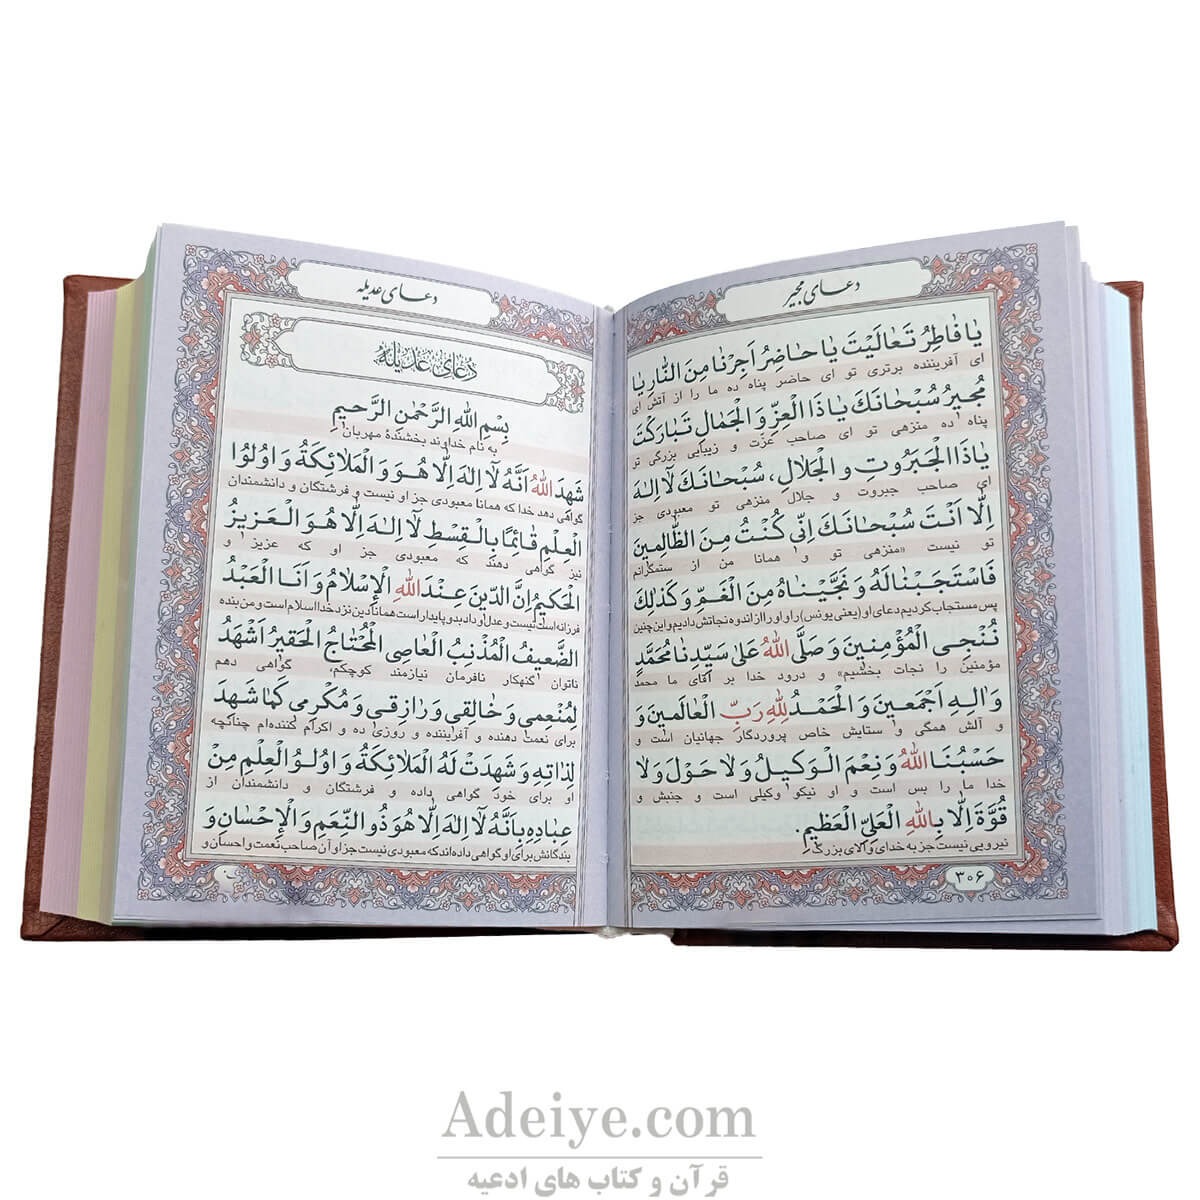 دعای مجیر
يا فاطِرُ تَعالَيْتَ يا حاضِرُ اَجِرْنا مِنَ النّارِ يا
ای آفریننده برتری تو ای حاضر پناه ده ما را از آتش ای
مُجيرُ سُبْحانَكَ يا ذَا الْعِزِّ وَ الْجَمالِ تَبارَكْتَ
پناه ده منزهی تو ای صاحب عزت و زیبایی بزرگی تو
يا ذَا الْجَبَرُوتِ وَ الْجَلالِ، سُبْحانَكَ لا اِلهَ
ای صاحب جبروت و جلال منزهی تو معبودی جز
اِلّا اَنْتَ سُبْحانَكَ اِنّی كُنْتُ مِنَ الظّالِمينَ
تو نیست «منزهی تو و همانا من از ستمگرانم
فَاسْتَجَبْنا لَهُ وَ نَجَّيْناهُ مِنَ الْغَمِّ وَ كَذلِكَ
پس مستجاب کردیم دعای او (یعنی یونس) را و او را از اندوه نجاتش دادیم و این چنین
نُنْجِی الْمُؤْمِنينَ وَ صَلَّی اللهُ عَلی سَيِّدِنا مُحَمَّدٍ
مؤمنین را نجات بخشیم» و درود خدا بر آقای ما محمد
وَ الِهِ اَجْمَعينَ وَ الْحَمْدُ لِلّهِ رَبِّ الْعالَمينَ وَ
و آلش همگی و ستایش خاص پروردگار جهانیان است و
حَسْبُنَا اللهُ وَ نِعْمَ الْوَكيلُ وَ لا حَوْلَ وَ لا
خدا ما را بس است و او نیکو وکیلی است و جنبش و
قُوَّةَ اِلّا بِاللهِ الْعَلِیِّ الْعَظيمِ.
نیرویی نیست جز به خدای والای بزرگ
۳۰۶
دعای عدیله
دُعای عَديلَه
بِسْمِ اللهِ الرَّحْمنِ الرَّحيمِ
به نام خداوند بخشندهٔ مهربان
شَهِدَ اللهُ اَنَّهُ لا اِلهَ اِلّا هُوَ وَ الْمَلائِكَةُ وَ اُولُوا
گواهی دهد خدا که همانا معبودی جز او نیست و فرشتگان و دانشمندان
الْعِلْمِ قائِمًا بِالْقِسْطِ لا اِلهَ اِلّا هُوَ الْعَزيزُ
نیز گواهی دهند که معبودی جز او که عزیز و
الْحَكيمُ اِنَّ الدّينَ عِنْدَ اللهِ الْاِسْلامُ وَ اَنَا الْعَبْدُ
فرزانه است نیست و عدل و داد بدو پایدار است همانا دین نزد خدا اسلام است و من بنده
الضَّعيفُ الْمُذْنِبُ الْعاصِی الْمُحْتاجُ الْحَقيرُ اَشْهَدُ
ناتوان گنهکار نافرمان نیازمند کوچکم، گواهی دهم
لِمُنْعِمی وَ خالِقی وَ رازِقی وَ مُكْرِمی كَما شَهِدَ
برای نعمت دهنده و آفریننده و روزی ده و اکرام کننده‌ام چنانچه
لِذاتِهِ وَ شَهِدَتْ لَهُ الْمَلائِكَةُ وَ اُولُو الْعِلْمِ مِنْ
او برای خود گواهی داده و فرشتگان و دانشمندان از
عِبادِهِ بِاَنَّهُ لا اِلهَ اِلّا هُوَ ذُو النِّعَمِ وَ الْاِحْسانِ وَ
بندگانش برای او گواهی داده‌اند که معبودی نیست جز او آن صاحب نعمت و احسان و
Adeiye.com
قرآن و کتاب های ادعیه